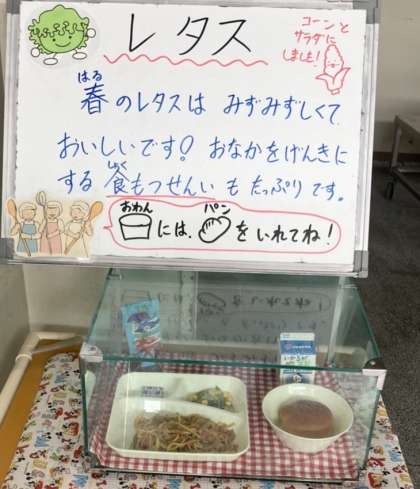 レタス
コーンと
サラダに
しました!
はる
春のレタスは みずみずしくて
おいしいです! おなかをげんきに
しょく
する 食もつせんい も たっぷり です。
おわん パン
には、 をいれてね!